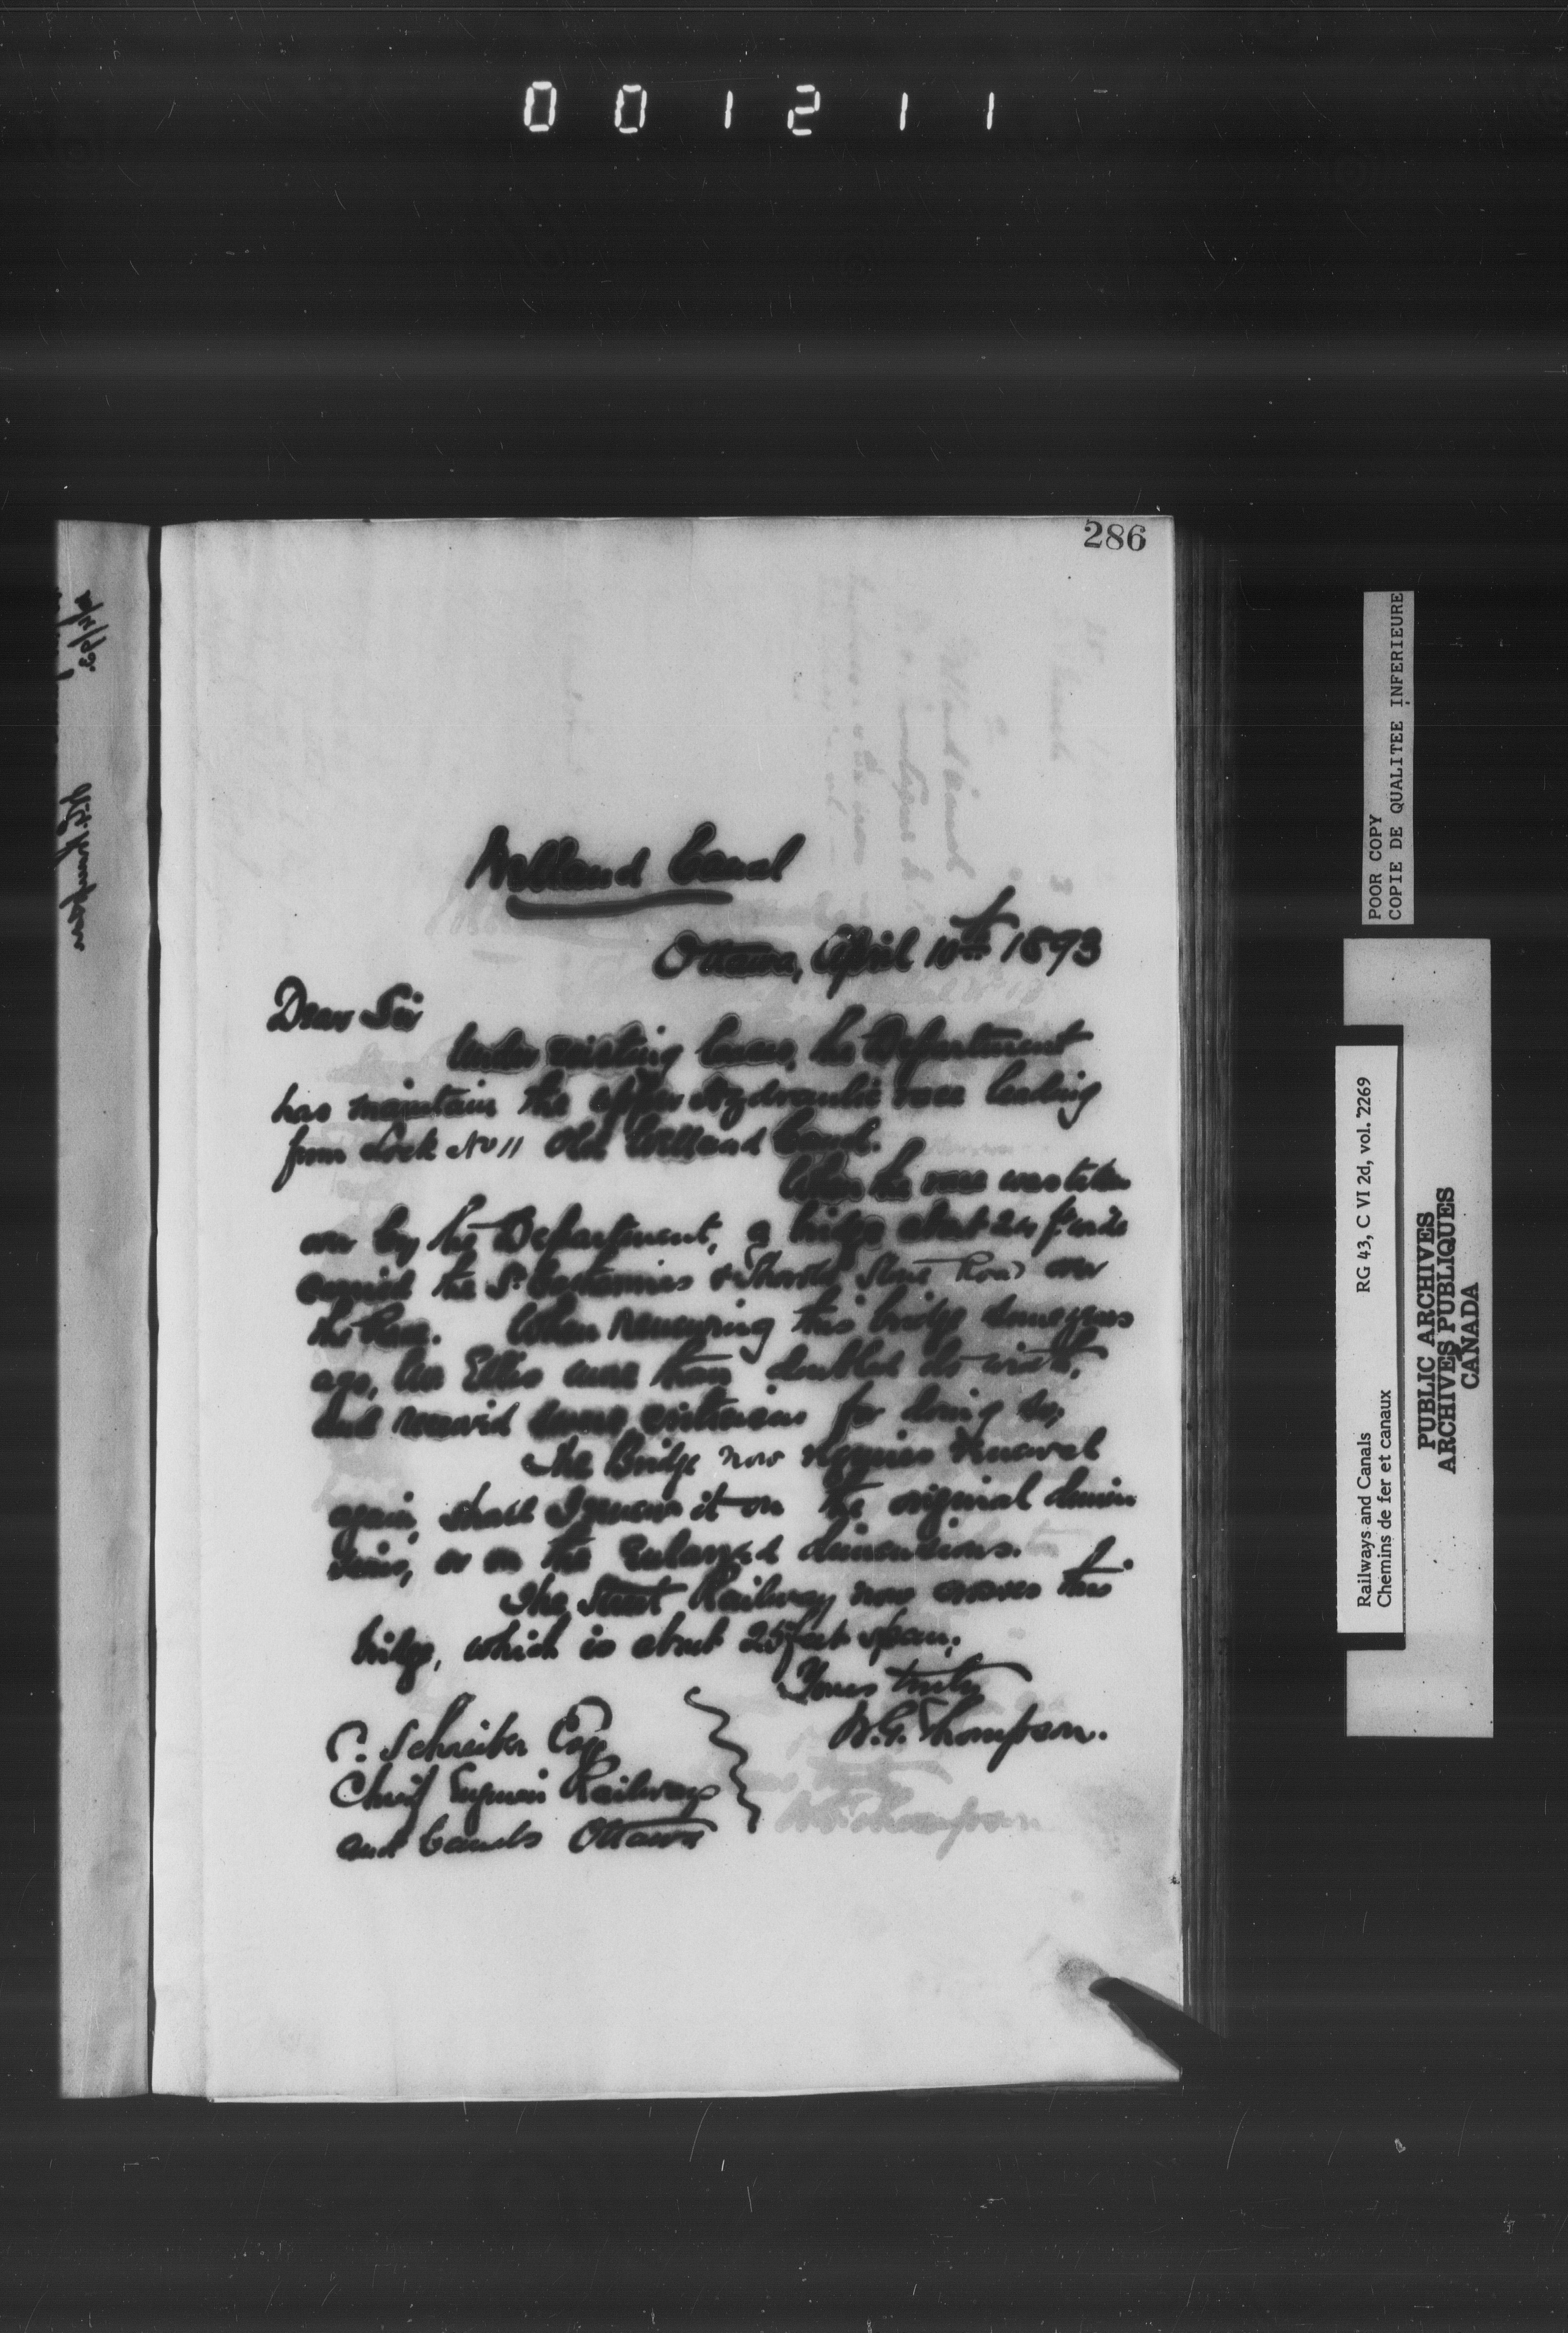 001211
286
Welland Canal
Ottawa, April 10th 1893
Dear Sir
Under existing leases, the Department
has maintain the upper Hydraulic race leading
from Lock No 11 Old Welland Canal.
When the race was taken
over by the Department, a bridge about 24 ft wide
carried the St Catharines & Thorold Stone Road over
the Race. When renewing this bridge some years
ago, Mr Ellis more than doubled its width,
and received some criticism for doing so,
The Bridge now requires renewal
again, shall I renew it on the original dimen
sions, or on the Enlarged dimensions.
The Street Railway now crosses this
bridge, which is about 25 feet span.
Yours truly
W.G. Thompson.
C. Schreiber Esq
Chief Engineer Railways
and Canals Ottawa
POOR COPY
COPIE DE QUALITEE INFERIEURE
Railways and Canals RG 43, C VI 2d, vol. 2269
Chemins de fer et canaux
PUBLIC ARCHIVES
ARCHIVES PUBLIQUES
CANADA